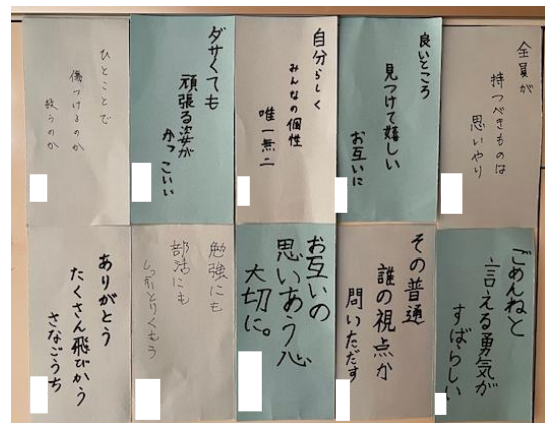 全員が
持つべきものは
思いやり
良いところ
見つけて嬉しい
お互いに
自分らしく
みんなの個性
唯一無二
ダサくても
頑張る姿が
かっこいい
ひとことで
傷つけるのか
救うのか
ごめんねと
言える勇気が
すばらしい
その普通
誰の視点か
問いただす
お互いの
思いあう心
大切に。
勉強にも
部活にも
しっかりとりくもう
ありがとう
たくさん飛びかう
さなごうち